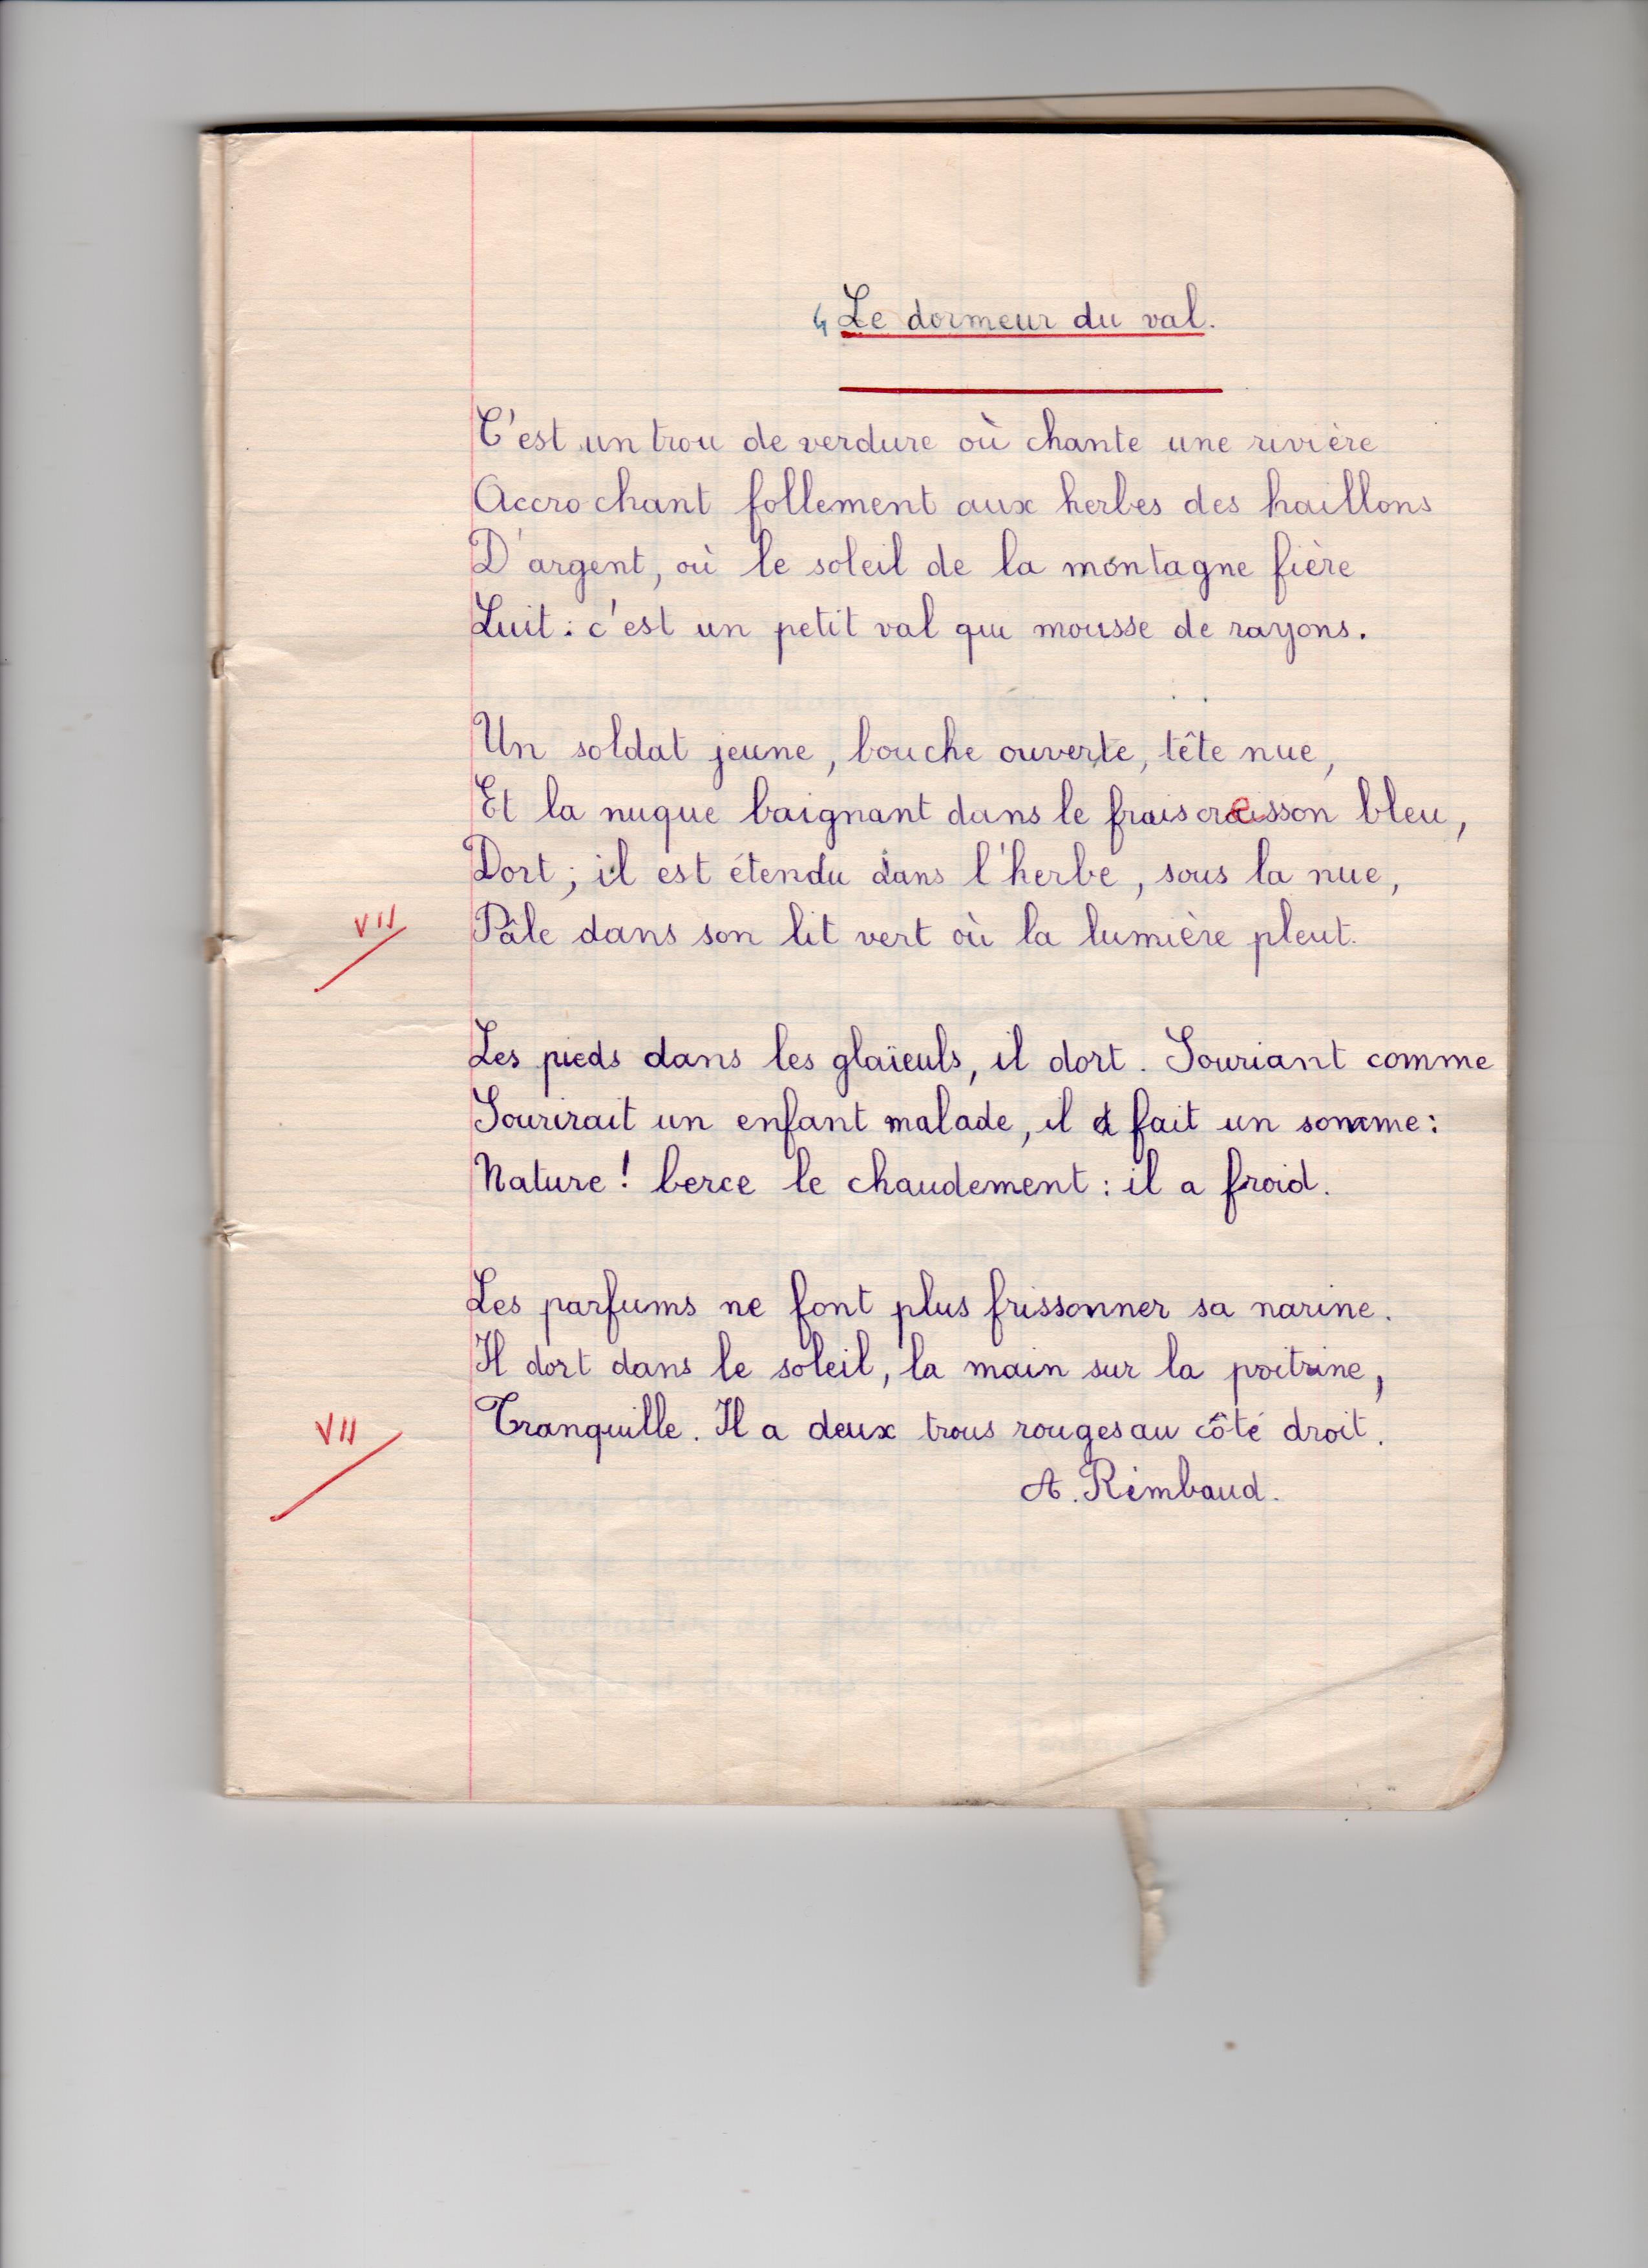 4 Le dormeur du val.
C'est un trou de verdure où chante une rivière
Accrochant follement aux herbes des haillons
D'argent, où le soleil de la montagne fière
Luit : c'est un petit val qui mousse de rayons.
Un soldat jeune, bouche ouverte, tête nue,
Et la nuque baignant dans le frais cresson bleu,
Dort ; il est étendu dans l'herbe, sous la nue,
VII Pâle dans son lit vert où la lumière pleut.
Les pieds dans les glaïeuls, il dort. Souriant comme
Sourirait un enfant malade, il fait un somme :
Nature ! berce le chaudement : il a froid.
Les parfums ne font plus frissonner sa narine.
Il dort dans le soleil, la main sur la poitrine,
VII Tranquille. Il a deux trous rouges au côté droit.
A. Rimbaud.